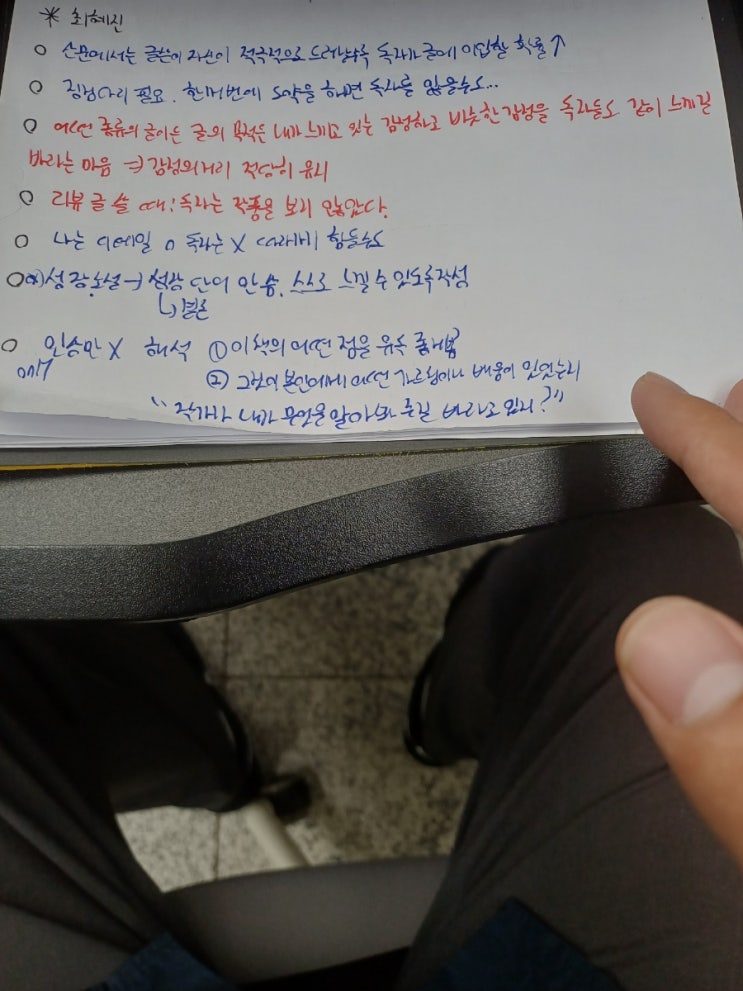 * 최혜진
○ 산문에서는 글쓴이 자신이 적극적으로 드러날수록 독자가 글에 이입할 확률↑
○ 징검다리 필요. 한꺼번에 도약을 하면 독자를 잃을수도...
○ 어떤 종류의 글이든 글의 목적은 내가 느끼고 있는 감정하고 비슷한 감정을 독자들도 같이 느끼길
바라는 마음 → 감정의 거리 적당히 유지
○ 리뷰 글 쓸 때: 독자는 작품을 보지 않았다.
○ 나는 디테일 O 독자는 X 따라가기 힘들수도
○ 성장소설 → 성장 단어 안 씀. 스스로 느낄 수 있도록 작성
↳ 결론
○ 인상만 X 해석 ① 이 책의 어떤 점을 유독
② 그것이 본인에게 어떤 가르침이나 배움이 있었는지
"작가가 내가 무엇을 알아봐 주길 바라고 있지?"